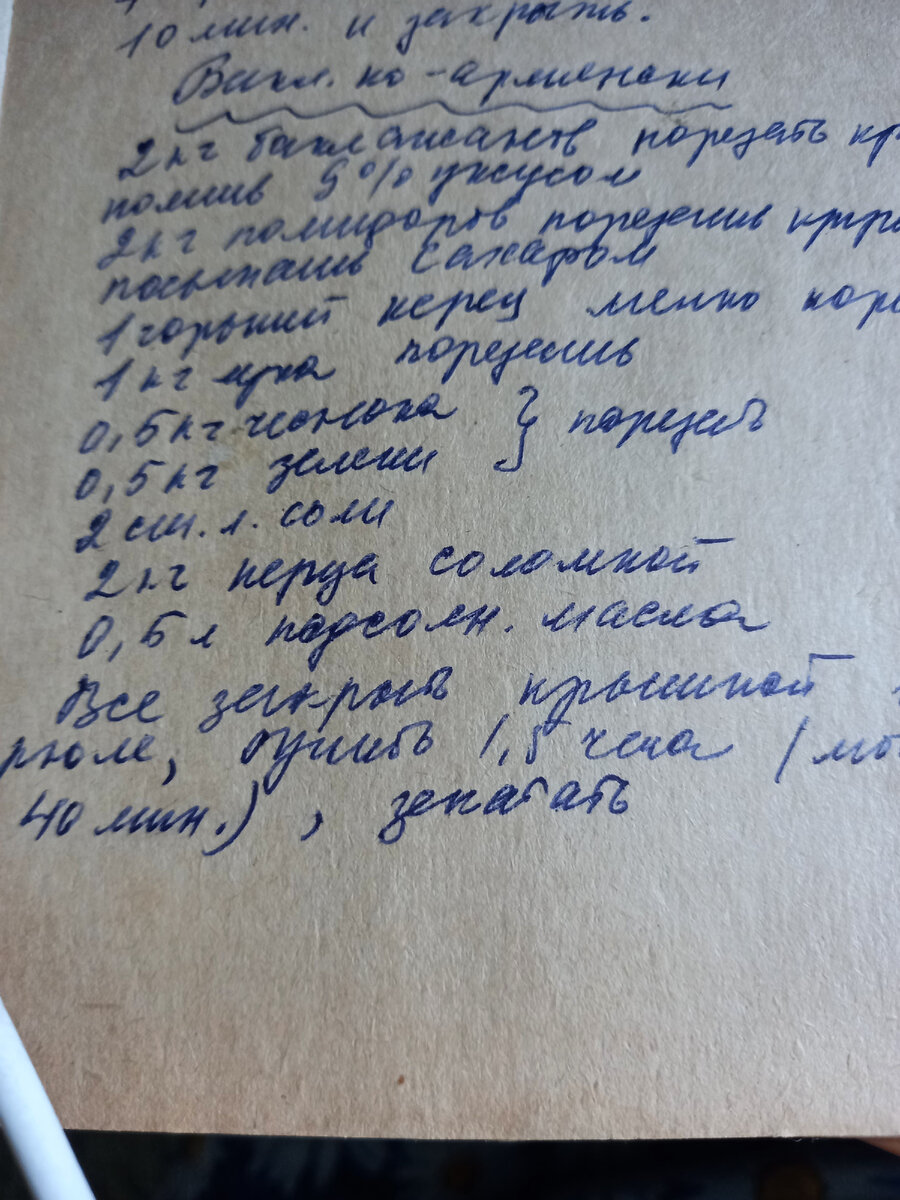 10 мин. и закрыть.
Бакл. по-армянски
2 кг баклажанов порезать кр
полив 9% уксусом
2 кг помидоров порезать кр
посыпать сахаром
1 горький перец мелко поре
1 кг лука порезать
0,5 кг чеснока } порезать
0,5 кг зелени
2 ст. л. соли
2 кг перца соломкой
0,5 л подсолн. масла
Все закрыть крышкой
рюле, тушить 1,5 часа
40 мин.), закатать